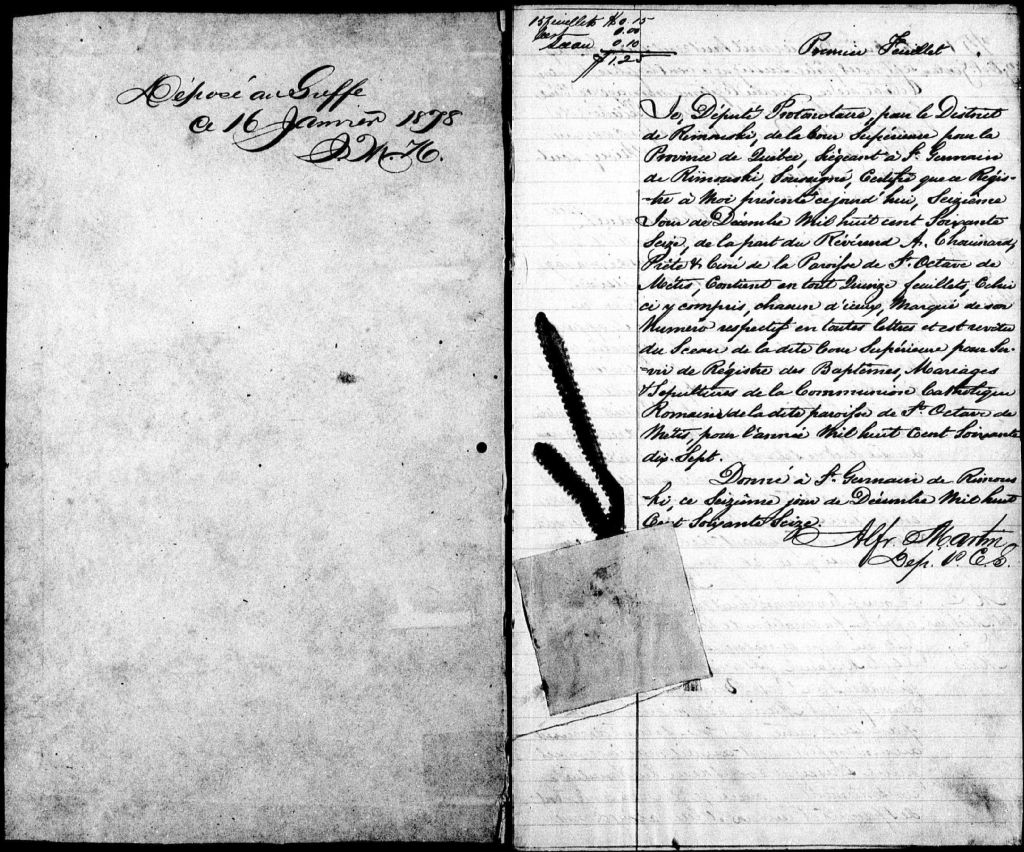 Déposé au Greffe
ce 16 Janvier 1878
15 feuillets $0.15
0.10
$1.25
Premier Feuillet
Je, Député Protonotaire, pour le District
de Rimouski, de la Cour Supérieure pour la
Province de Québec, siégeant à St. Germain
de Rimouski, Soussigné, Certifie que ce Régis-
-tre à Moi présenté cejourd'hui, Seizième
Jour de Décembre Mil huit cent Soixante
Seize, de la part du Révérend A. Chouinard,
Prêtre & Curé de la Paroisse de St. Octave de
Métis, Contient en tout Quinze feuillets, Celui
ci y compris, chacun d'iceux, Marqué de son
Numéro respectif en toutes lettres et est revêtu
du Sceau de la dite Cour Supérieure pour Ser-
-vir de Registre des Baptêmes, Mariages
& Sépultures de la Communion Catholique
Romaine de la dite paroisse de St. Octave de
Métis, pour l'année Mil huit Cent Soixante
dix-Sept.
Donné à St. Germain de Rimous
ki, ce Seizième jour de Décembre Mil huit
Cent Soixante Seize.
Alfr. Martin
Dep. P. C. S.